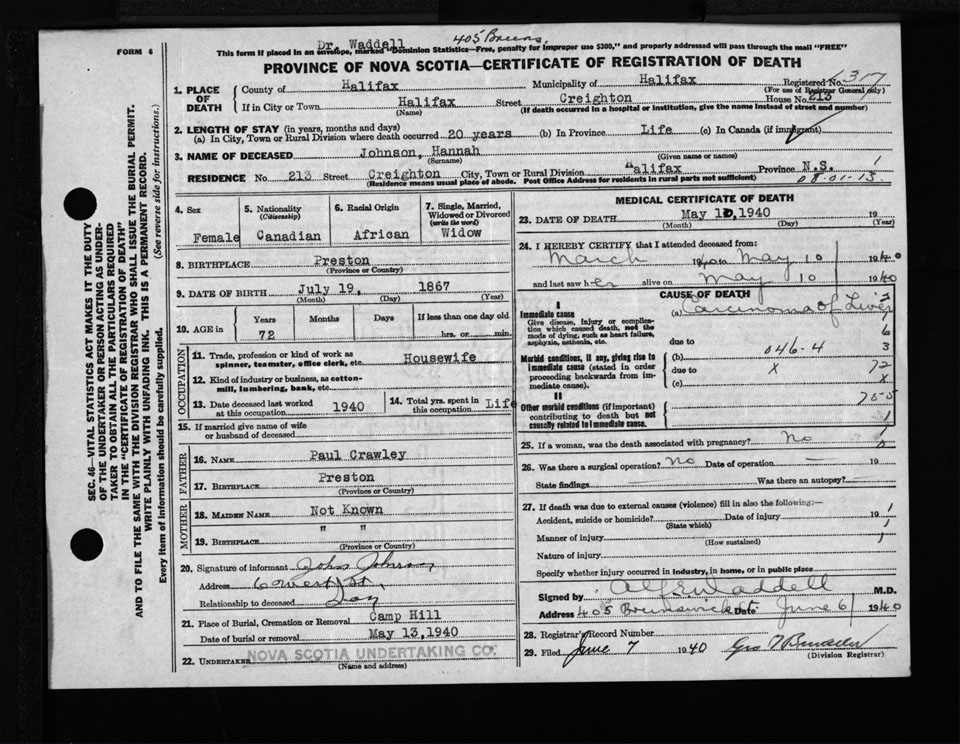 FORM 6
Dr. Waddell
This form if placed in an envelope, marked "Dominion Statistics—Free, penalty for improper use $300," and properly addressed will pass through the mail "FREE"
PROVINCE OF NOVA SCOTIA—CERTIFICATE OF REGISTRATION OF DEATH
1. PLACE OF DEATH
County of Halifax Municipality of Halifax Registered No. 317
(For use of Registrar General only)
If in City or Town Halifax Street Creighton House No. 213
(Name) (If death occurred in a hospital or institution, give the name instead of street and number)
2. LENGTH OF STAY (in years, months and days)
(a) In City, Town or Rural Division where death occurred 20 years (b) In Province Life (c) In Canada (if immigrant)
3. NAME OF DECEASED Johnson, Hannah
(Surname) (Given name or names)
RESIDENCE No. 213 Street Creighton City, Town or Rural Division Halifax Province N.S. 1
(Residence means usual place of abode. Post Office Address for residents in rural parts not sufficient) 08-01-13
4. Sex Female
5. Nationality (Citizenship) Canadian
6. Racial Origin African
7. Single, Married, Widowed or Divorced (write the word) Widow
8. BIRTHPLACE Preston
(Province or Country)
9. DATE OF BIRTH July 19, 1867
(Month) (Day) (Year)
10. AGE in Years Months Days If less than one day old
72 hrs. or min.
OCCUPATION
11. Trade, profession or kind of work as spinner, teamster, office clerk, etc. Housewife
12. Kind of industry or business, as cotton-mill, lumbering, bank, etc.
13. Date deceased last worked at this occupation 1940
14. Total yrs. spent in this occupation Life
15. If married give name of wife or husband of deceased
FATHER
16. NAME Paul Crawley
17. BIRTHPLACE Preston
(Province or Country)
MOTHER
18. MAIDEN NAME Not Known
19. BIRTHPLACE " "
(Province or Country)
20. Signature of informant John Johnson
Address 6 West St.
Relationship to deceased Son
21. Place of Burial, Cremation or Removal Camp Hill
Date of burial or removal May 13, 1940
22. UNDERTAKER NOVA SCOTIA UNDERTAKING CO.
(Name and address)
MEDICAL CERTIFICATE OF DEATH
23. DATE OF DEATH May 10, 1940 19
(Month) (Day)
24. I HEREBY CERTIFY that I attended deceased from:
March 1940 to May 10 1940
and last saw her alive on May 10 1940
CAUSE OF DEATH
I
Immediate cause
Give disease, injury or complication which caused death, not the mode of dying, such as heart failure, asphyxia, asthenia, etc.
(a) Carcinoma of Liver
due to
Morbid conditions, if any, giving rise to immediate cause (stated in order proceeding backwards from immediate cause).
(b) 046-4
due to X
(c)
II
Other morbid conditions (if important) contributing to death but not causally related to immediate cause.
25. If a woman, was the death associated with pregnancy? No
26. Was there a surgical operation? No Date of operation — 19
State findings Was there an autopsy?
27. If death was due to external causes (violence) fill in also the following:—
Accident, suicide or homicide? Date of injury 19
(State which)
Manner of injury
(How sustained)
Nature of injury
Specify whether injury occurred in industry, in home, or in public place
Signed by Alf E Waddell M.D.
Address 405 Brunswick St Date June 6 1940
28. Registrar's Record Number
29. Filed June 7 1940
(Division Registrar)
SEC. 46—VITAL STATISTICS ACT MAKES IT THE DUTY
OF THE UNDERTAKER OR PERSON ACTING AS UNDER-
TAKER TO OBTAIN ALL THE PARTICULARS REQUIRED
IN THE "CERTIFICATE OF REGISTRATION OF DEATH"
AND TO FILE THE SAME WITH THE DIVISION REGISTRAR WHO SHALL ISSUE THE BURIAL PERMIT.
WRITE PLAINLY WITH UNFADING INK. THIS IS A PERMANENT RECORD.
Every item of information should be carefully supplied. (See reverse side for instructions.)